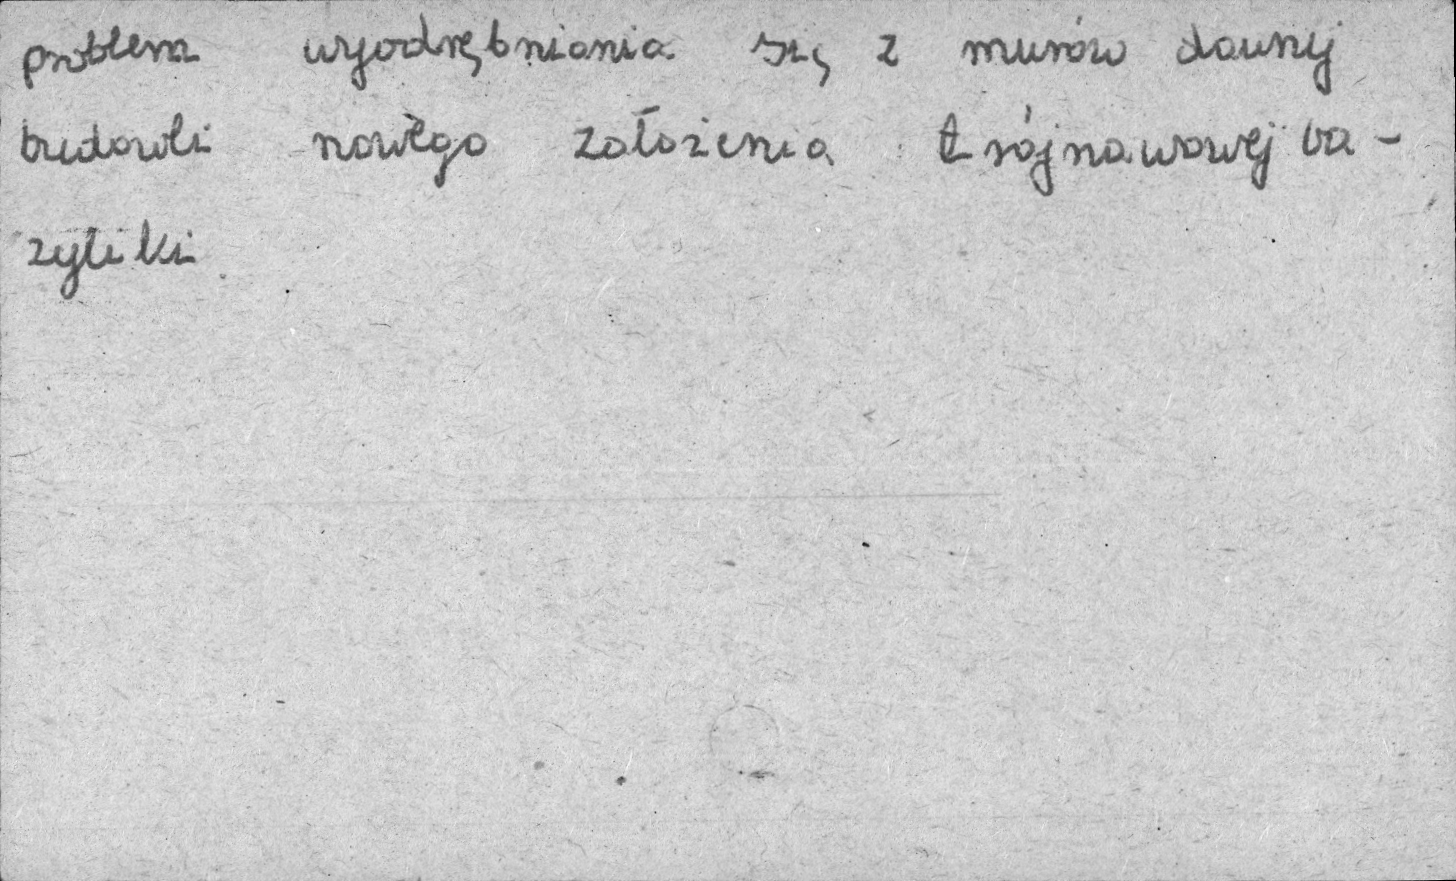 problem wyodrębniania się z murów dawnej
budowli nowego założenia trójnawowej ba-
zyliki